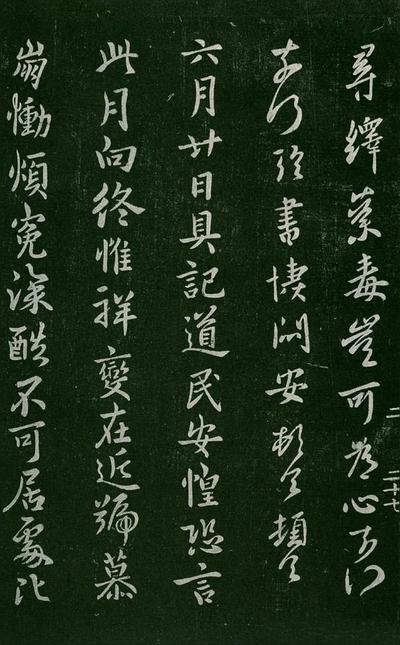 尋繹荼毒豈可為心奈何
奈何臨書悽悶安頓首頓首
六月廿日具記道民安惶恐言
此月向終惟祥變在近號慕
崩慟煩冤深酷不可居處比
二 二十七